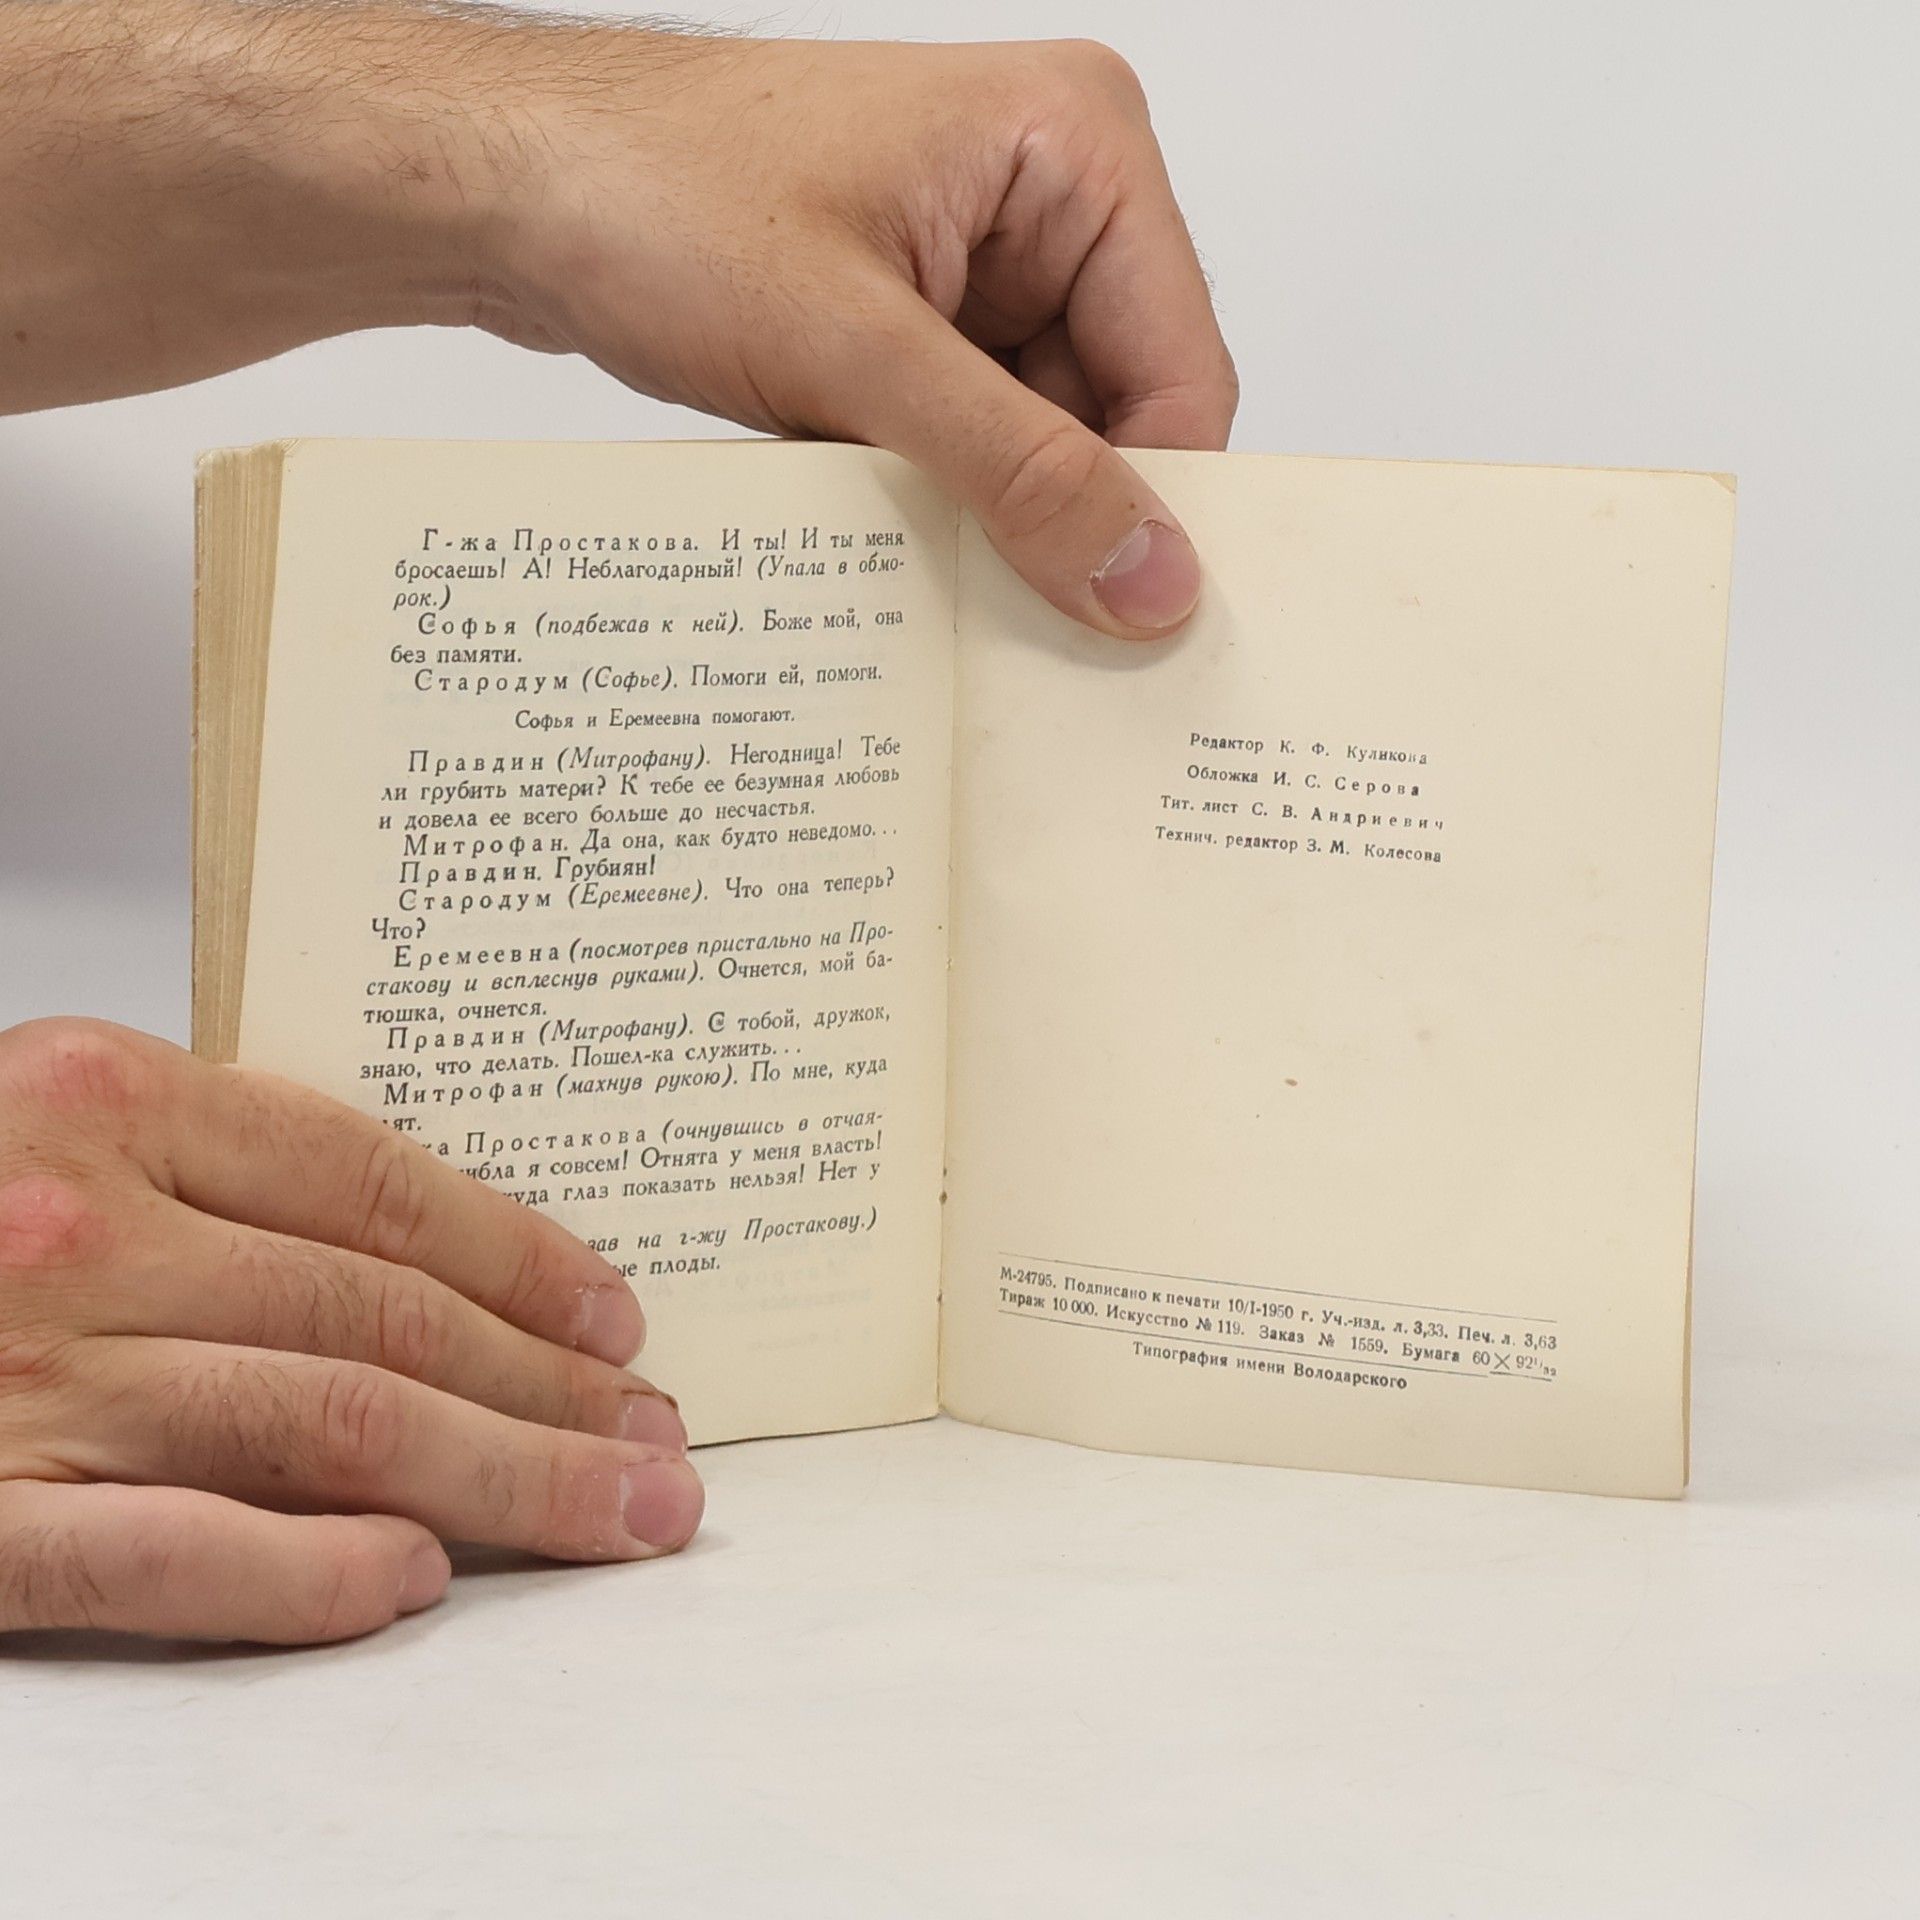 Г-жа Простакова. И ты! И ты меня
бросаешь! А! Неблагодарный! (Упала в обмо-
рок.)
Софья (подбежав к ней). Боже мой, она
без памяти.
Стародум (Софье). Помоги ей, помоги.
Софья и Еремеевна помогают.
Правдин (Митрофану). Негодница! Тебе
ли грубить матери? К тебе ее безумная любовь
и довела ее всего больше до несчастья.
Митрофан. Да она, как будто неведомо...
Правдин. Грубиян!
Стародум (Еремеевне). Что она теперь?
Что?
Еремеевна (посмотрев пристально на Про-
стакову и всплеснув руками). Очнется, мой ба-
тюшка, очнется.
Правдин (Митрофану). С тобой, дружок,
знаю, что делать. Пошел-ка служить...
Митрофан (махнув рукою). По мне, куда
Простакова (очнувшись в отчая-
я совсем! Отнята у меня власть!
глаз показать нельзя! Нет у
на г-жу Простакову.)
плоды.
Редактор К. Ф. Куликова
Обложка И. С. Серова
Тит. лист С. В. Андриевич
Технич. редактор З. М. Колесова
М-24795. Подписано к печати 10/I-1950 г. Уч.-изд. л. 3,33. Печ. л. 3,63
Тираж 10 000. Искусство № 119. Заказ № 1559. Бумага 60×92¹/₃₂
Типография имени Володарского